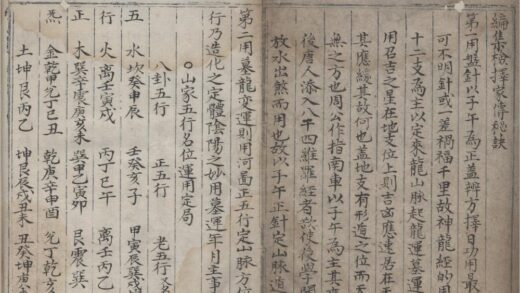 編集擇家傳秘訣
第一用盤針以子午為正盖辨方擇日功用最
可不明針或一差禍福千里故神龍經的用
十二支為主以定來龍山脉起龍運墓運
用召吉之星在地支位上則吉凶應速居在
其應緩其故何也盖地支有形造之位而
無之方也周公作指南車以子午為主其
後唐人添入八干四維羅經者欲使後學
放水出煞而用也故以子午正針定山脉道
第二用墓龍变運則用河啚正五行定山脉方
行乃造化之定體陰陽之妙用墓運年月主事
○山家五行名位運用定局
八卦五行 正五行 老五行
五 水坎癸申辰 壬癸亥子 甲寅辰巽戌
行 火離壬寅戌 丙丁巳午 離壬丙乙
正 木巽辛震庚亥未 巽甲乙寅卯 艮震巽
金乾甲兌丁巳丑 乾庚辛申酉 兌丁乾亥
土坤艮丙乙 坤艮辰戌丑未 丑癸坤庚